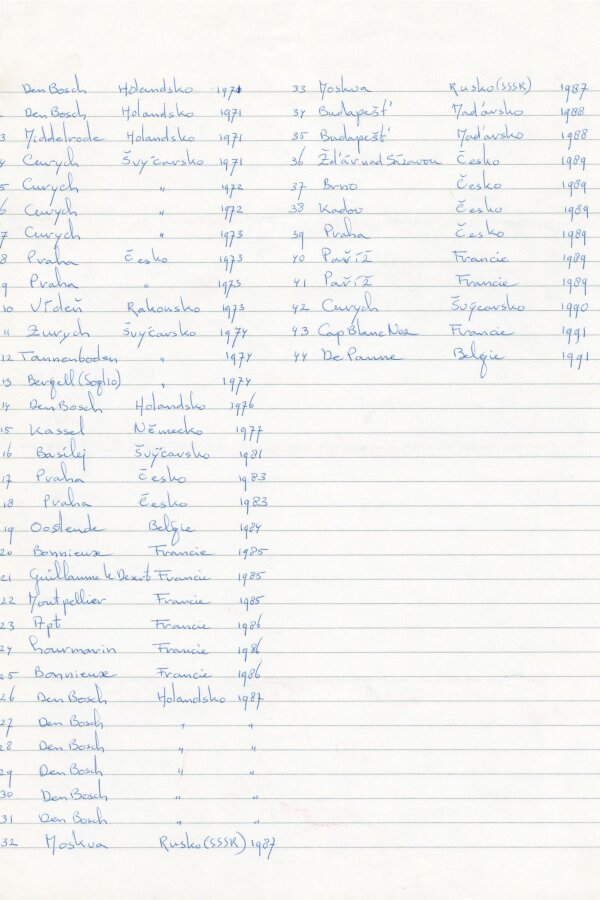 Den Bosch Holandsko 1971
Den Bosch Holandsko 1971
3 Middelrode Holandsko 1971
4 Curych Švýcarsko 1971
5 Curych " 1972
6 Curych " 1972
7 Curych " 1973
8 Praha Česko 1973
9 Praha " 1973
10 Vídeň Rakousko 1973
11 Zurych Švýcarsko 1974
12 Tannenboden " 1974
13 Bergell (Soglio) " 1974
14 Den Bosch Holandsko 1976
15 Kassel Německo 1977
16 Basilej Švýcarsko 1981
17 Praha Česko 1983
18 Praha Česko 1983
19 Oostende Belgie 1984
20 Bonnieux Francie 1985
21 Guillaume le Desert Francie 1985
22 Montpellier Francie 1985
23 Apt Francie 1986
24 Lourmarin Francie 1986
25 Bonnieux Francie 1986
26 Den Bosch Holandsko 1987
27 Den Bosch " "
28 Den Bosch " "
29 Den Bosch " "
30 Den Bosch " "
31 Den Bosch " "
32 Moskva Rusko (SSSR) 1987
33 Moskva Rusko (SSSR) 1987
34 Budapešť Maďarsko 1988
35 Budapešť Maďarsko 1988
36 Žďár nad Sázavou Česko 1989
37 Brno Česko 1989
38 Kadov Česko 1989
39 Praha Česko 1989
40 Paříž Francie 1989
41 Paříž Francie 1989
42 Curych Švýcarsko 1990
43 Cap Blanc Nez Francie 1991
44 De Panne Belgie 1991